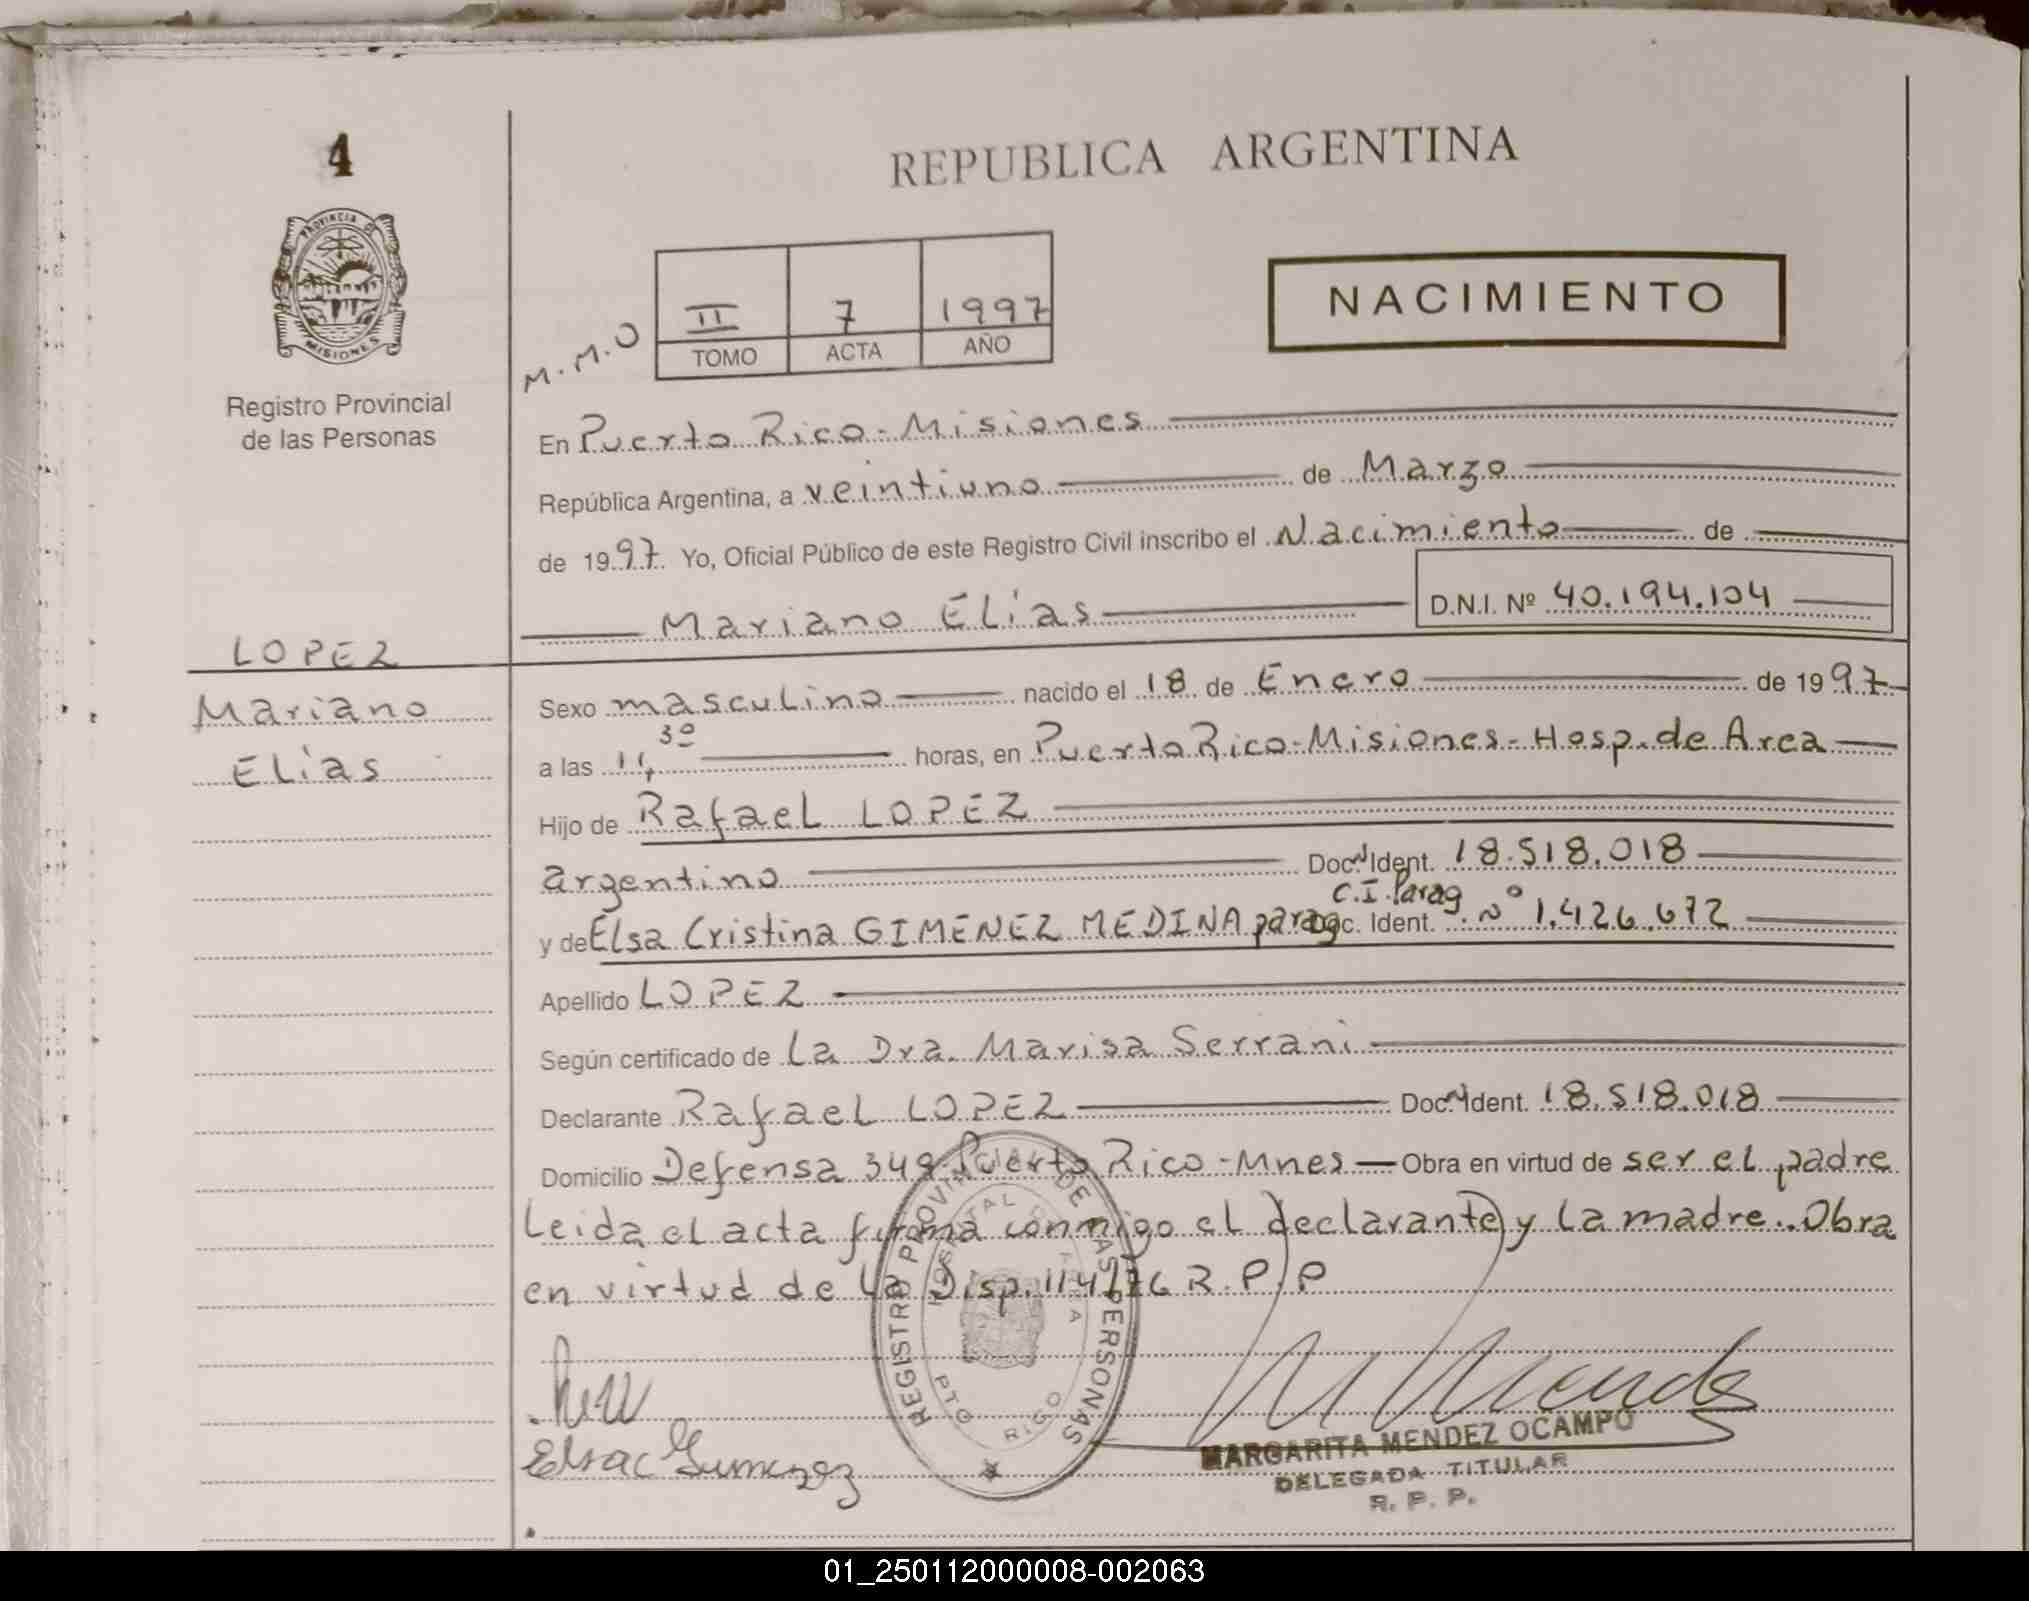 4
REPUBLICA ARGENTINA
PROVINCIA DE
MISIONES
Registro Provincial
de las Personas
M.M.O
II 7 1997
TOMO ACTA AÑO
NACIMIENTO
En Puerto Rico - Misiones
República Argentina, a veintiuno de Marzo
de 1997 Yo, Oficial Público de este Registro Civil inscribo el Nacimiento de
Mariano Elías D.N.I. Nº 40.194.104
LOPEZ
Mariano
Elías
Sexo masculino nacido el 18 de Enero de 1997
a las 11,30 horas, en Puerto Rico - Misiones - Hosp. de Area
Hijo de Rafael LOPEZ
argentino Doc. Ident. 18.518.018
C.I. Parag
y de Elsa Cristina GIMENEZ MEDINA parag Doc. Ident. Nº 1.426.672
Apellido LOPEZ
Según certificado de La Dra. Marisa Serrani
Declarante Rafael LOPEZ Doc. Ident. 18.518.018
Domicilio Defensa 349 - Puerto Rico - Mnes Obra en virtud de ser el padre
Leida el acta firma conmigo el (declarante) y la madre. Obra
en virtud de la Disp. 114/76 R.P.P
REGISTRO PROVINCIAL DE LAS PERSONAS
HOSPITAL DE AREA
PTO RICO
M Mendez
Elsa C Gimenez
MARGARITA MENDEZ OCAMPO
DELEGADA TITULAR
R. P. P.
01_250112000008-002063